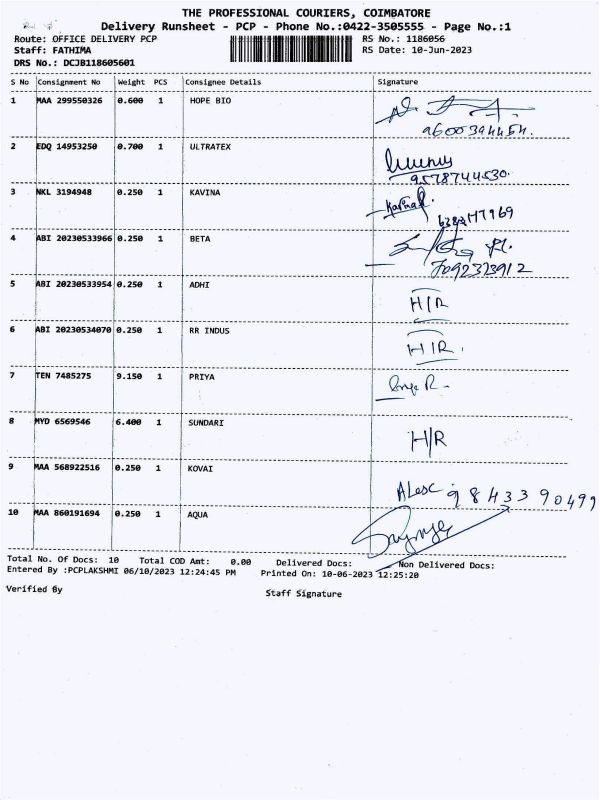 THE PROFESSIONAL COURIERS, COIMBATORE
Delivery Runsheet - PCP - Phone No.:0422-3505555 - Page No.:1
Route: OFFICE DELIVERY PCP RS No.: 1186056
Staff: FATHIMA RS Date: 10-Jun-2023
DRS No.: DCJB118605601
S No Consignment No Weight PCS Consignee Details Signature
1 MAA 299550326 0.600 1 HOPE BIO
9600394454.
2 EDQ 14953250 0.700 1 ULTRATEX
9578744530.
3 NKL 3194948 0.250 1 KAVINA
4 ABI 20230533966 0.250 1 BETA
7092323912
5 ABI 20230533954 0.250 1 ADHI
H/R
6 ABI 20230534070 0.250 1 RR INDUS
H/R.
7 TEN 7485275 9.150 1 PRIYA
8 MYD 6569546 6.400 1 SUNDARI
H/R
9 MAA 568922516 0.250 1 KOVAI
9843390499
10 MAA 860191694 0.250 1 AQUA
Total No. Of Docs: 10 Total COD Amt: 0.00 Delivered Docs: Non Delivered Docs:
Entered By :PCPLAKSHMI 06/10/2023 12:24:45 PM Printed On: 10-06-2023 12:25:20
Verified By Staff Signature